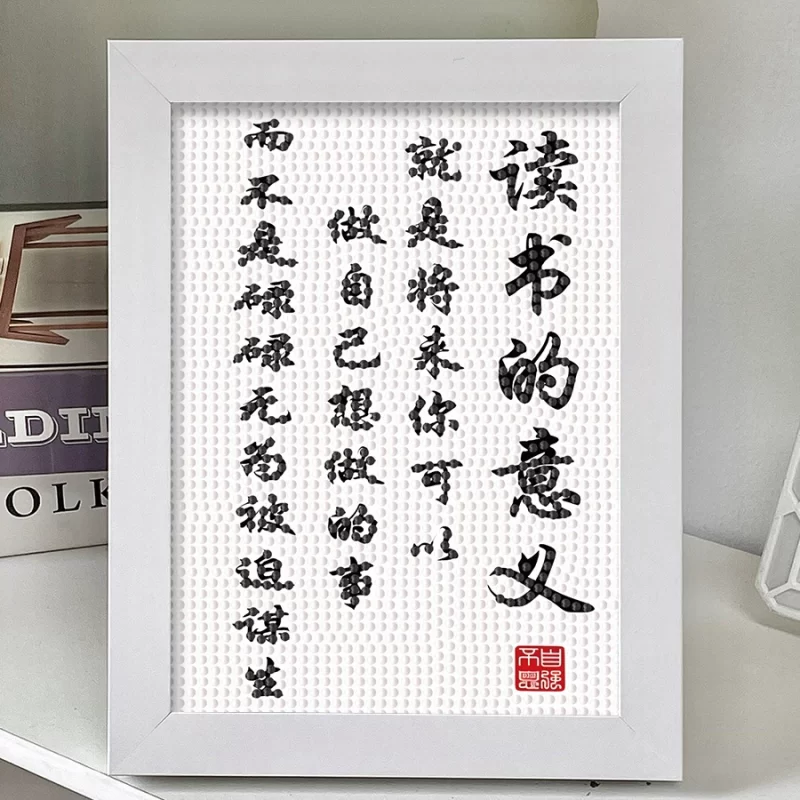 读书的意义
就是将来你可以
做自己想做的事
而不是碌碌无为被迫谋生
自强不息
ADIN
OLK